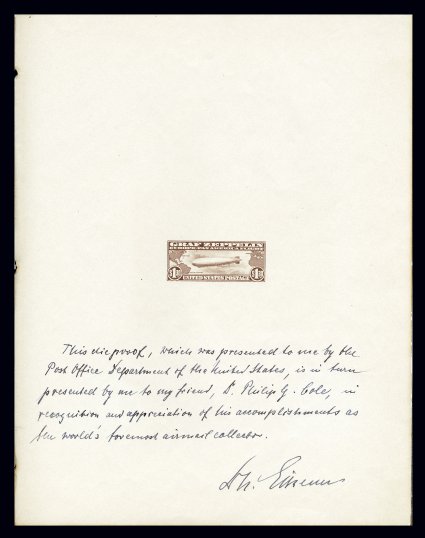 GRAF ZEPPELIN
EUROPE-PAN AMERICA FLIGHT
$1 $1
UNITED STATES POSTAGE
This die proof, which was presented to me by the
Post Office Department of the United States, is in turn
presented by me to my friend, Dr. Philip G. Cole, in
recognition and appreciation of his accomplishments as
the world's foremost airmail collector.